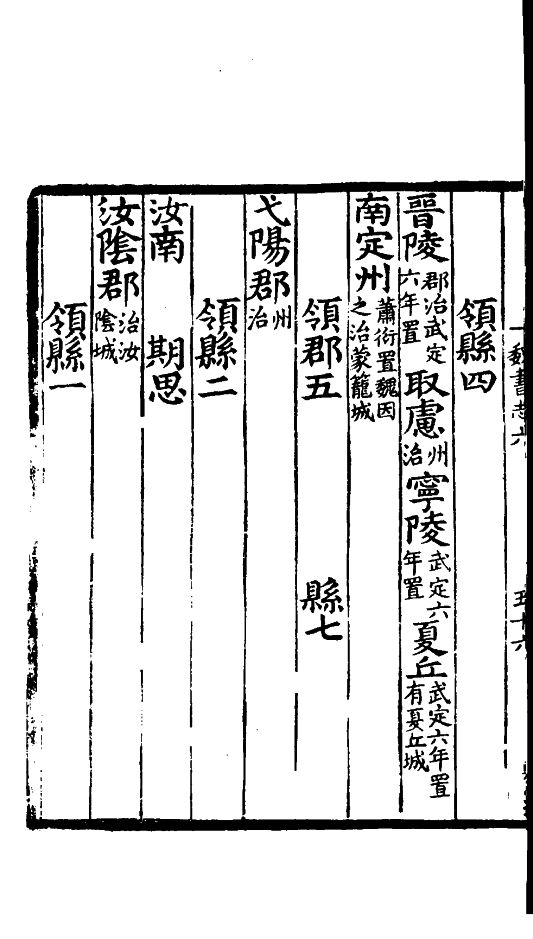 魏書志六 五十六
領縣四
晉陵郡治武定六年置取慮州治寧陵武定六年置夏丘武定六年置有夏丘城
南定州蕭衍置魏因之治蒙籠城
領郡五 縣七
弋陽郡州治
領縣二
汝南 期思
汝陰郡治汝陰城
領縣一